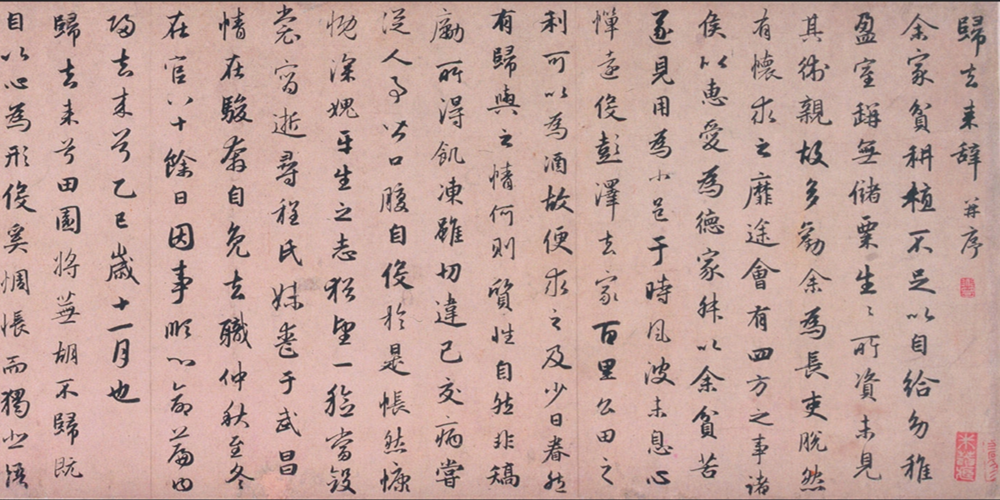 歸去来辞 并序
余家貧耕植不足以自給幼稚
盈室缾無儲粟生〻所資未見
其術親故多勸余為長吏脫然
有懷求之靡途會有四方之事諸
侯以惠愛為德家叔以余貧苦
遂見用為小邑于時風波未息心
憚遠役彭澤去家百里公田之
利可以為酒故便求之及少日眷然
有歸與之情何則質性自然非矯
勵所得飢凍雖切違己交病嘗
從人事皆口腹自役於是悵然慷
慨深媿平生之志猶望一稔當斂
裳宵逝尋程氏妹喪于武昌
情在駿奔自免去職仲秋至冬
在官八十餘日因事順心命篇曰
歸去来兮乙巳歲十一月也
歸去来兮田園將蕪胡不歸既
自以心為形役奚惆悵而獨悲悟